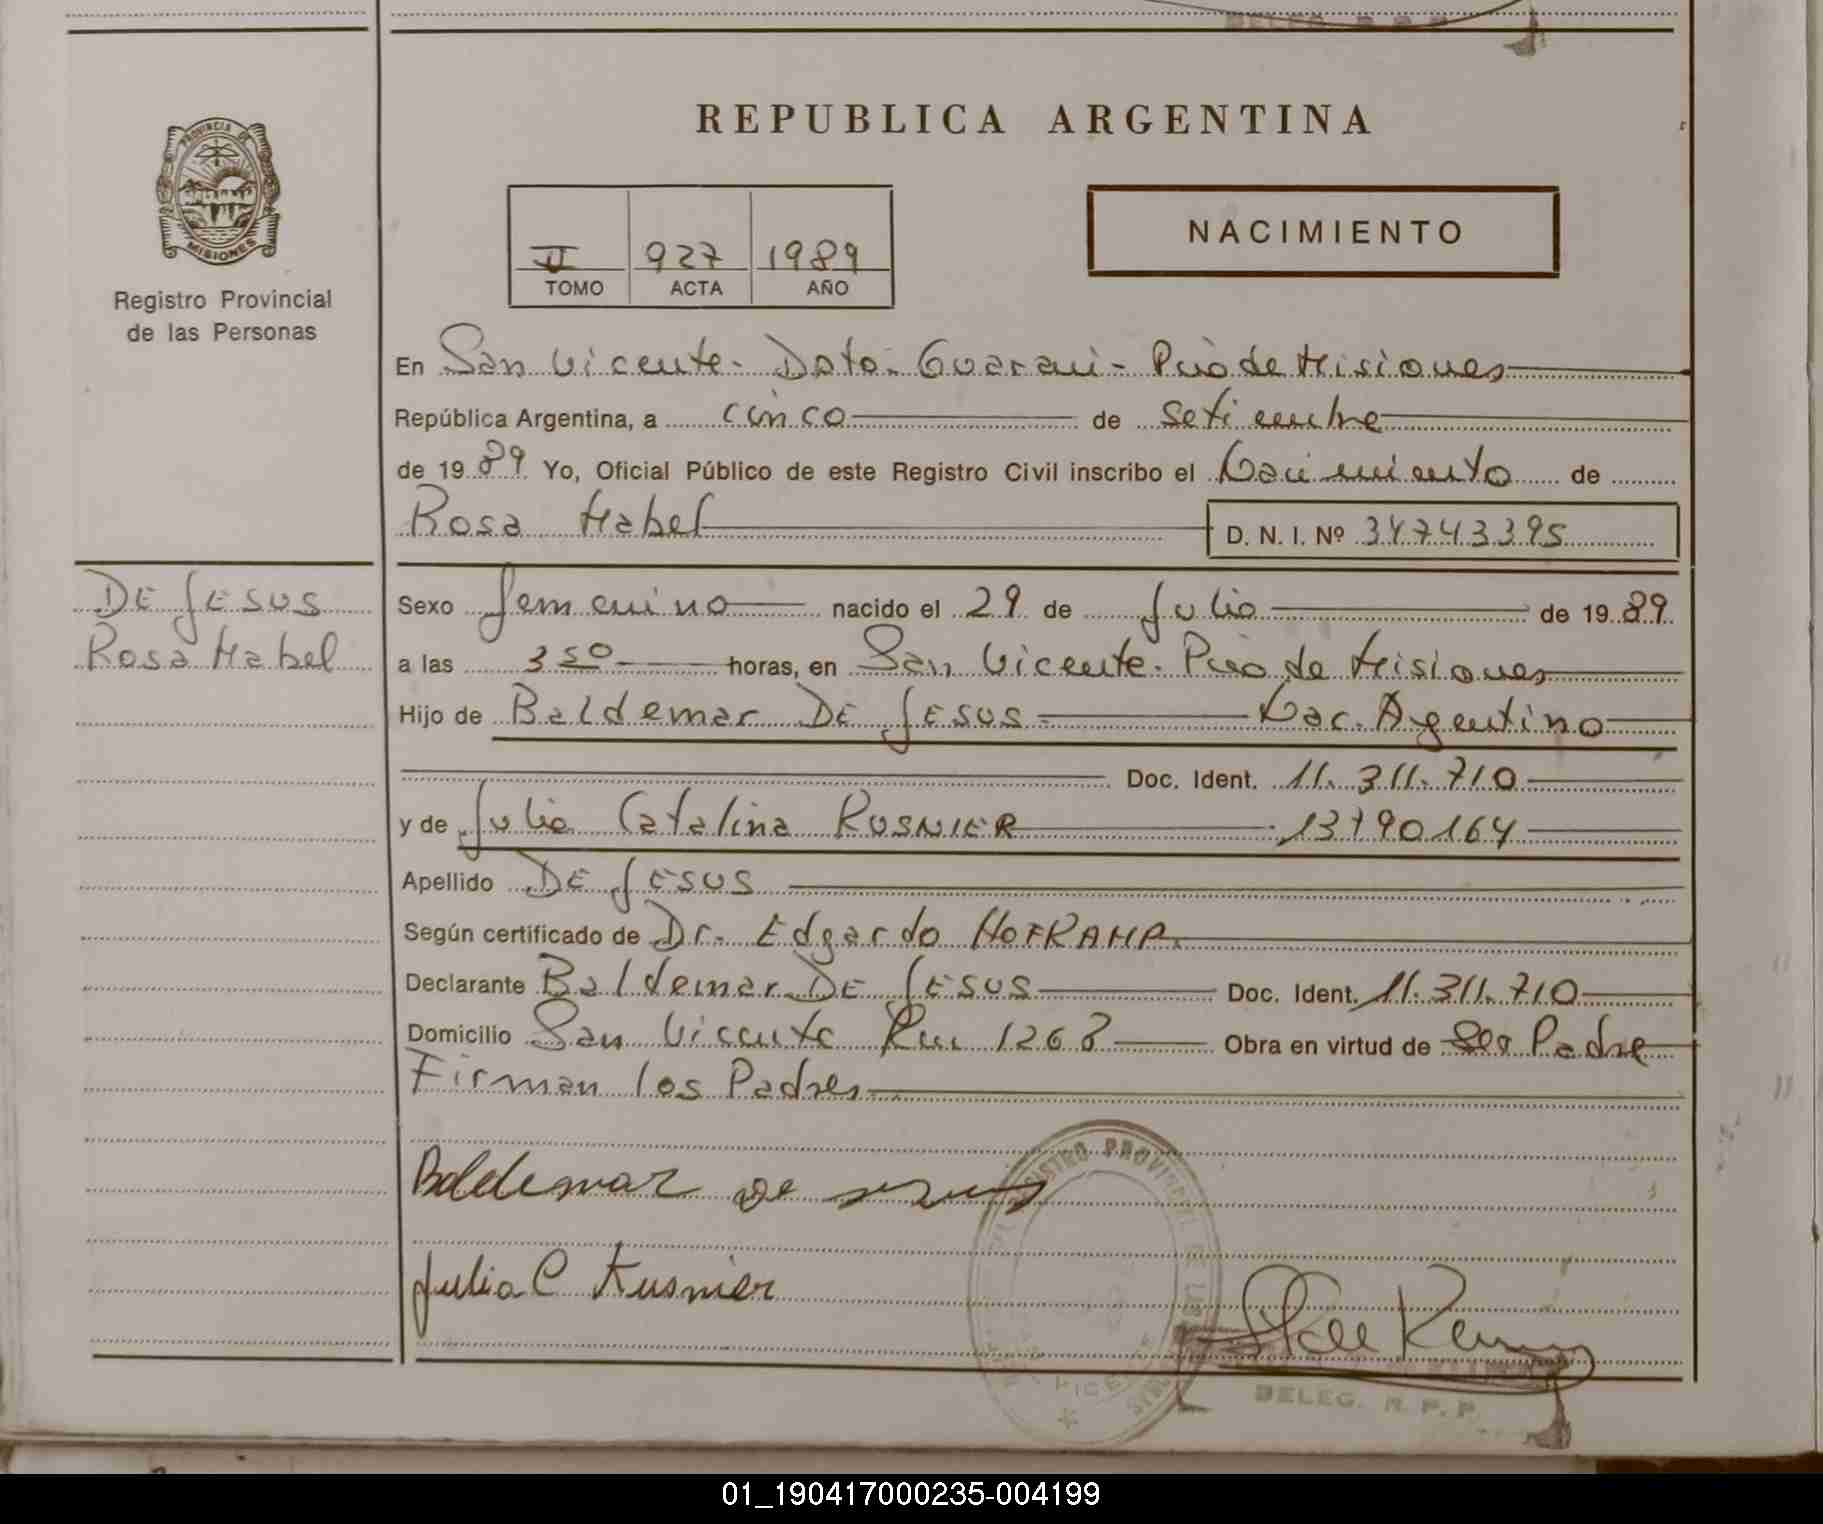 DELEG. R. P. P.
REPUBLICA ARGENTINA
PROVINCIA DE MISIONES
Registro Provincial
de las Personas
II 927 1989
TOMO ACTA AÑO
NACIMIENTO
En San Vicente - Dpto. Guarani - Pcia de Misiones
República Argentina, a cinco de setiembre
de 1989 Yo, Oficial Público de este Registro Civil inscribo el Nacimiento de
Rosa Mabel D. N. I. Nº 34743395
DE JESUS
Rosa Mabel
Sexo femenino nacido el 29 de Julio de 1989
a las 3 50 horas, en San Vicente - Pcia de Misiones
Hijo de Baldemar DE JESUS Nac. Argentino
Doc. Ident. 11.311.710
y de Julia Catalina KUSNIER 13790164
Apellido DE JESUS
Según certificado de Dr. Edgardo
Declarante Baldemar DE JESUS Doc. Ident. 11.311.710
Domicilio San Vicente Km 1268 Obra en virtud de Ser Padre
Firman los Padres
Baldemar De Jesus
Julia C Kusnier
REGISTRO PROVINCIAL DE LAS
VICENTE
DELEG. R. P. P.
01_190417000235-004199